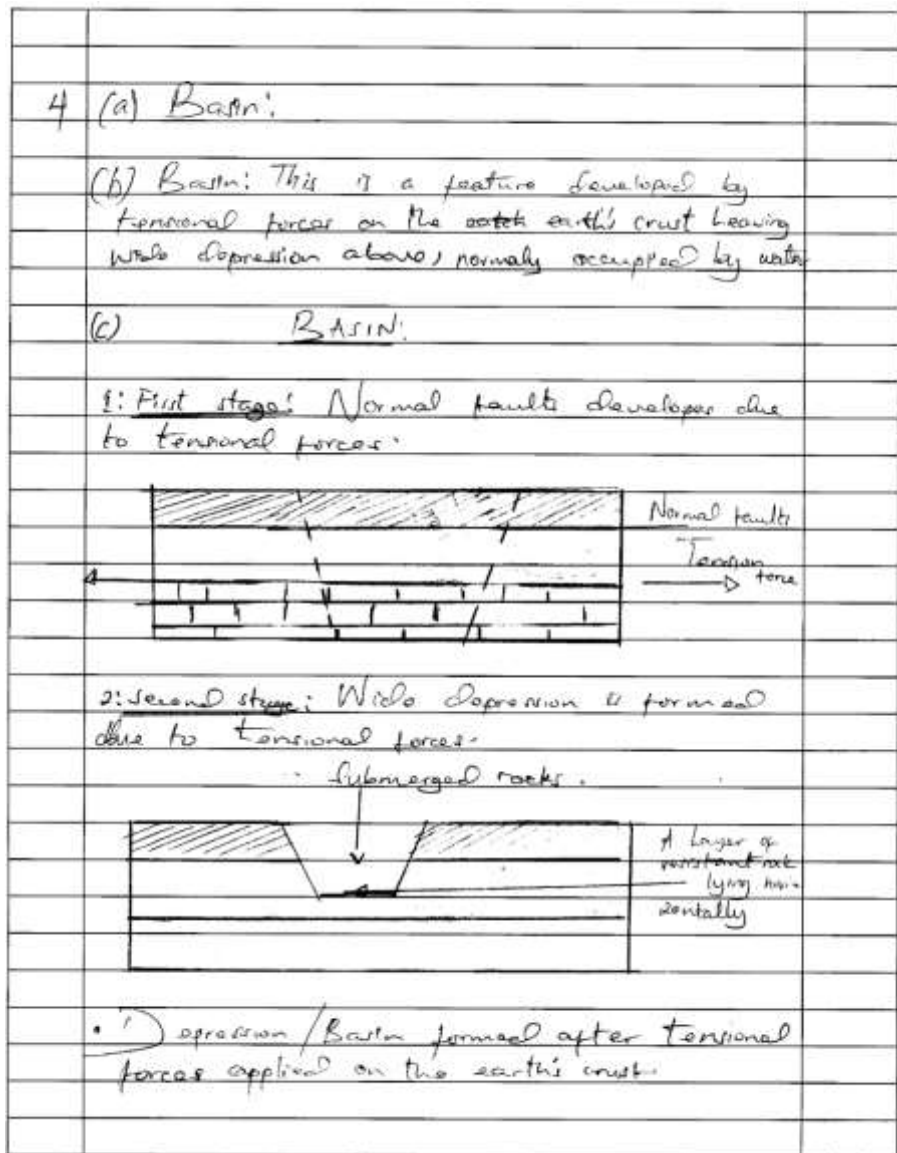 4 (a) Basin:
(b) Basin: This is a feature developed by
tensional forces on the earth's crust leaving
wide depression above, normaly occuppied by water
(c) BASIN:
1: First stage: Normal faults developes due
to tensional forces.
Normal faults
Tension
force
2: second stage: Wide depression is formed
due to tensional forces.
Submerged rocks.
A Layer of
resistant rock
lying hori-
zontally
Depression / Basin formed after tensional
forces applied on the earth's crust.